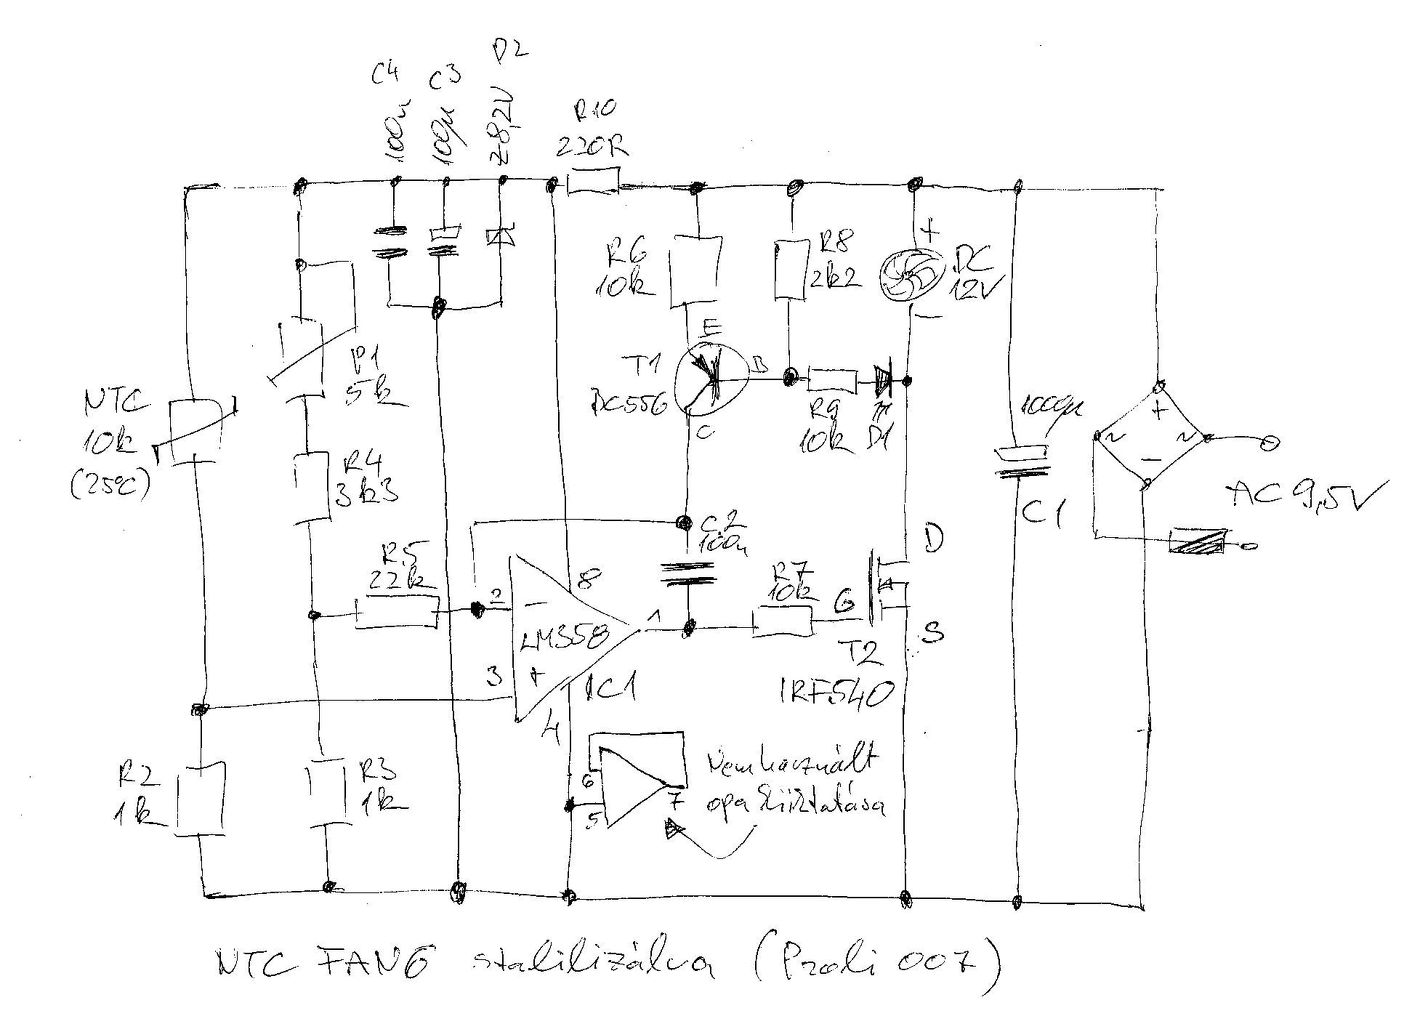 D2
C4
C3
100n
100µ
Z8,2V
R10
220R
R6
10k
R8
2k2
+
DC
12V
−
E
T1
B
BC556
C
R9
10k
D1
P1
5k
NTC
10k
(25°C)
R4
3k3
1000µ
C1
+
~
~
−
AC 9,5V
C2
100n
R5
22k
2
−
8
LM358
1
3
+
IC1
4
R7
10k
G
D
S
T2
IRF540
R2
1k
R3
1k
6
5
7
Nem használt
opa kiiktatása
NTC FAN6 stabilizálva (Proli 007)